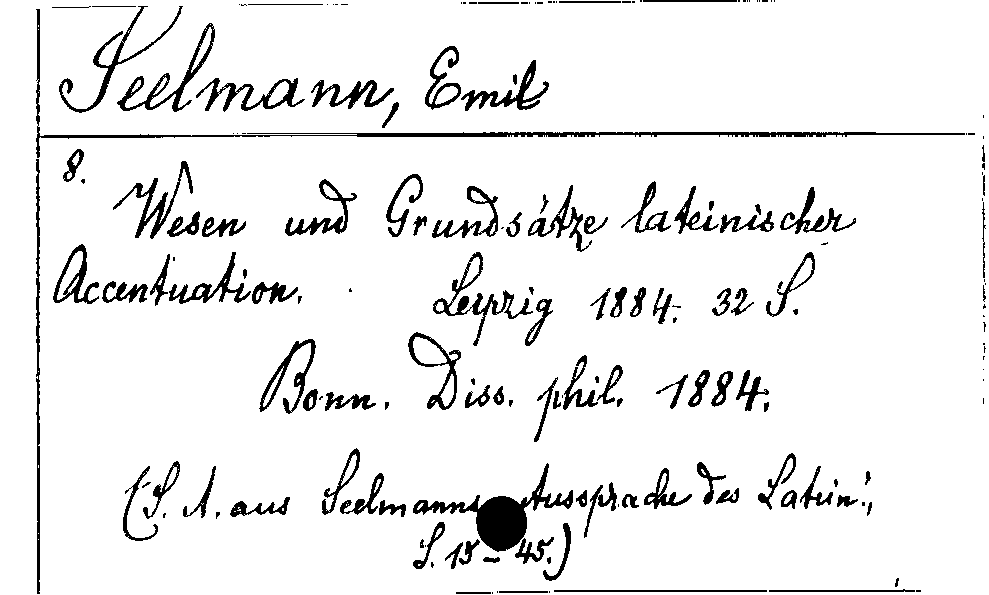 Seelmann, Emil
8.
Wesen und Grundsätze lateinischer
Accentuation. Leipzig 1884. 32 S.
Bonn. Diss. phil. 1884.
(S. A. aus Seelmanns „Aussprache des Latein",
S. 15-45.)